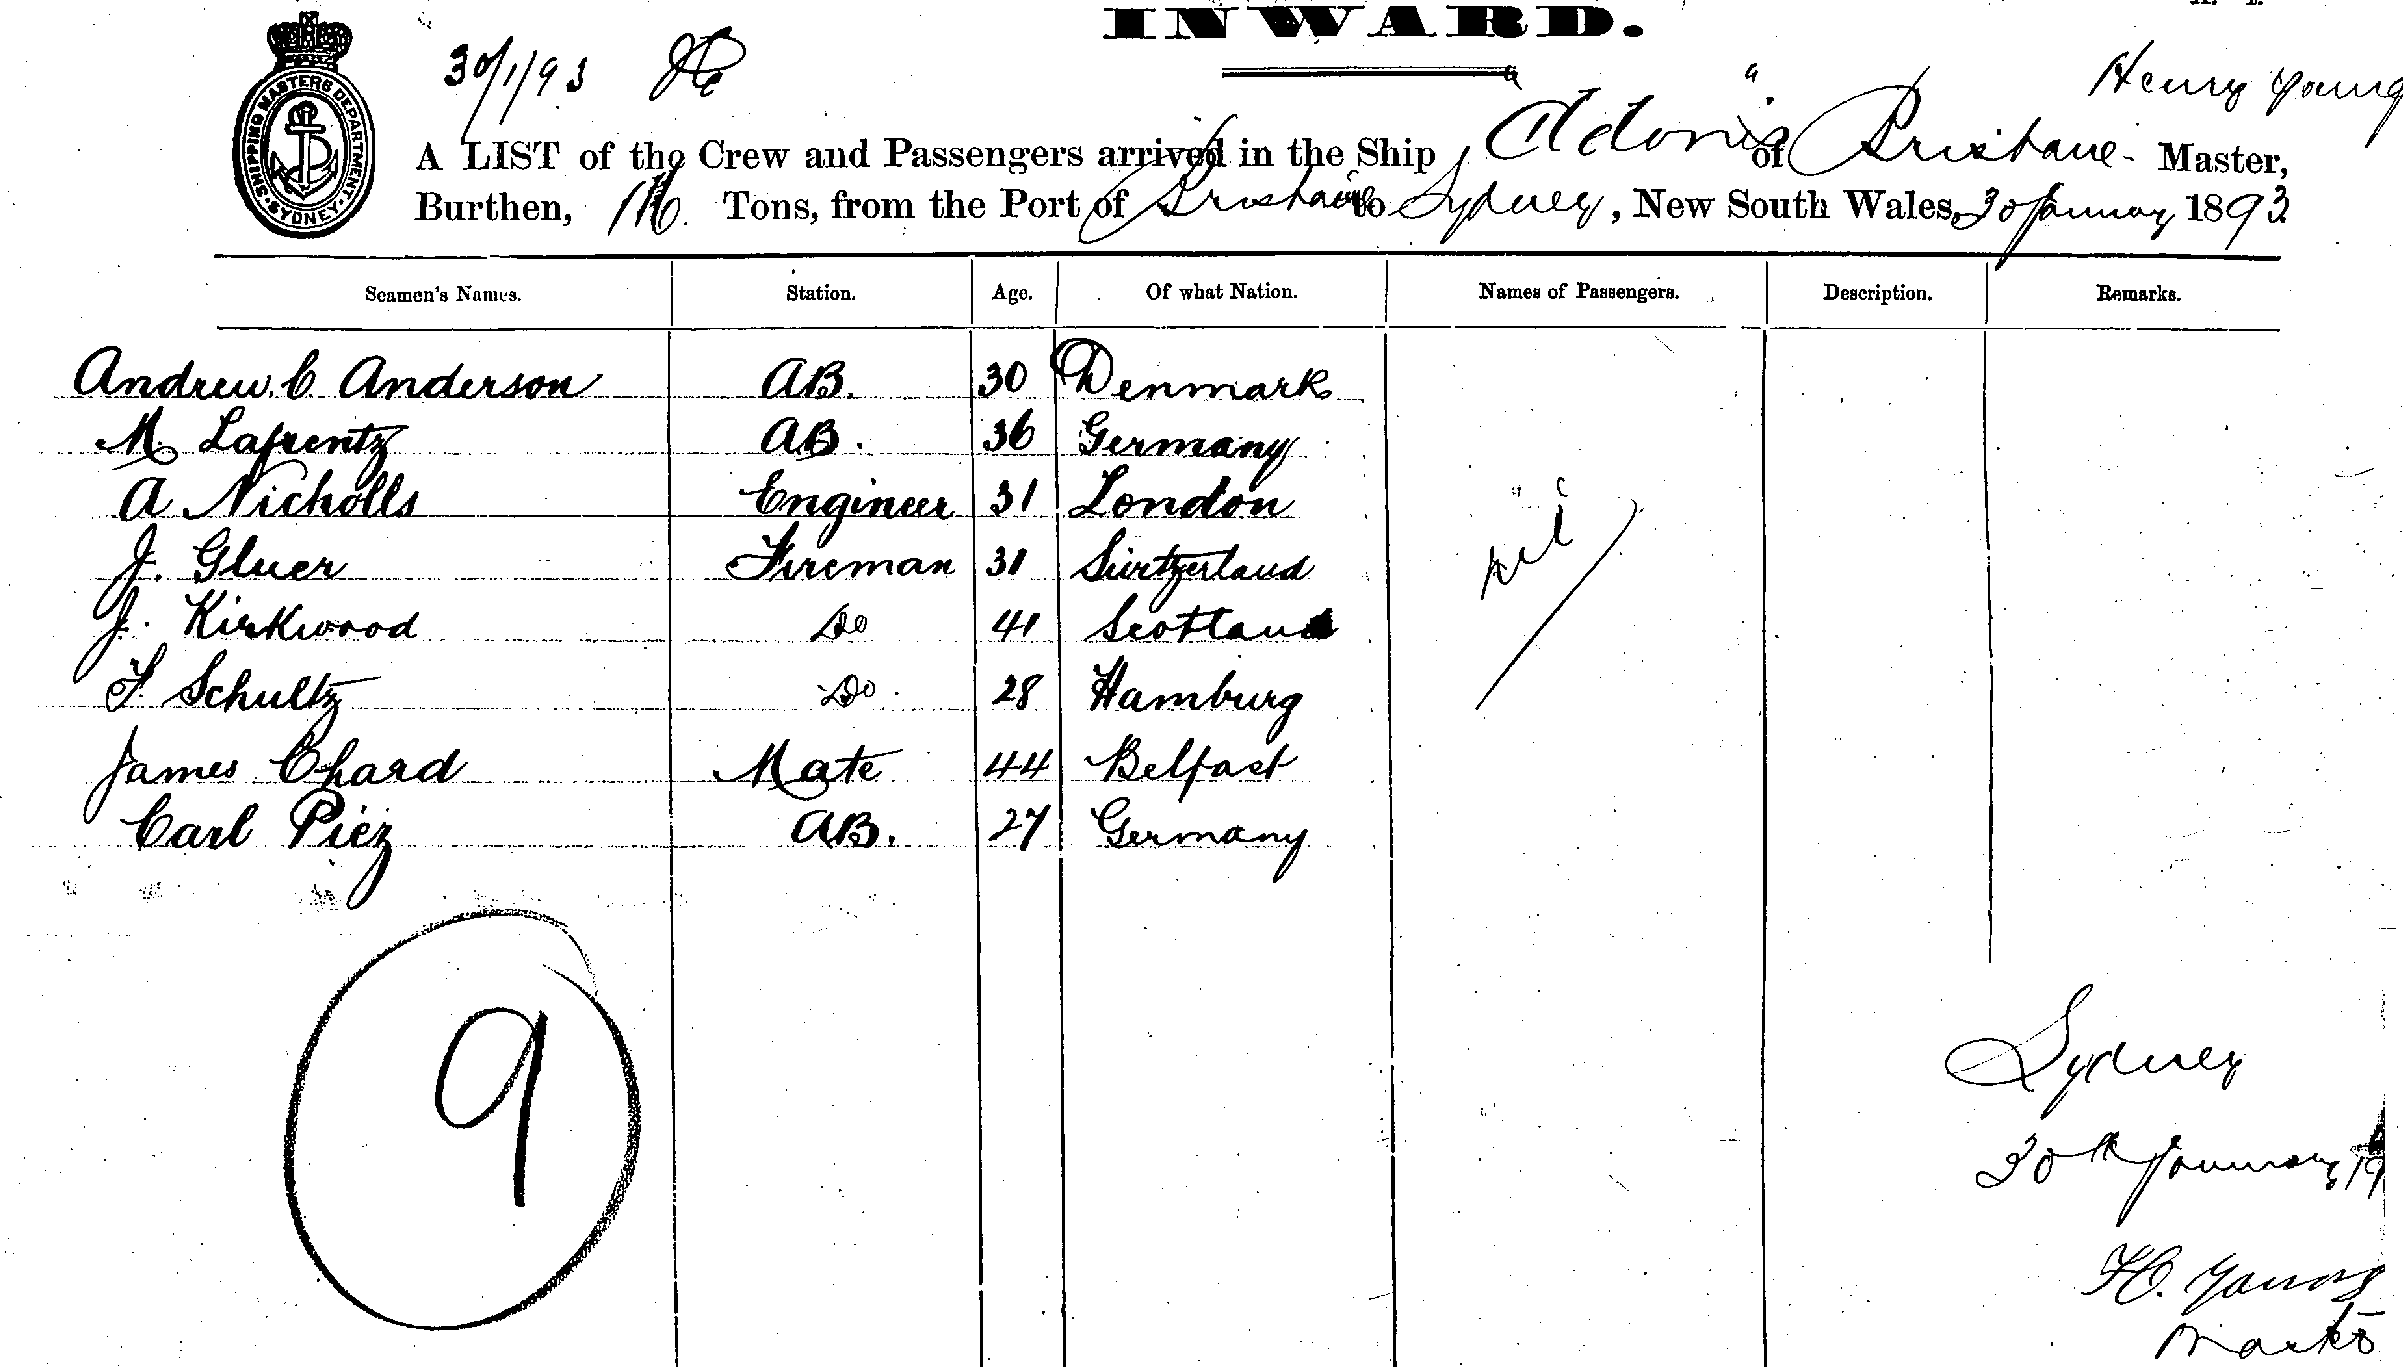 INWARD.
30/1/93
Henry Young
A LIST of the Crew and Passengers arrived in the Ship "Adonis" of Brisbane - Master,
Burthen, Tons, from the Port of Brisbane to Sydney, New South Wales, 30 January 1893
SHIPPING MASTERS DEPARTMENT. SYDNEY.
Seamen's Names. Station. Age. Of what Nation. Names of Passengers. Description. Remarks.
Andrew. C. Anderson AB. 30 Denmark
M Lafrentz AB. 36 Germany
A Nicholls Engineer 31 London
J. Gluer Fireman 31 Switzerland
J. Kirkwood Do 41 Scotland
F. Schultz Do. 28 Hamburg
James Chard Mate 44 Belfast
Carl Piez AB. 27 Germany
nil
9
Sydney
30th January
H. Young
Master